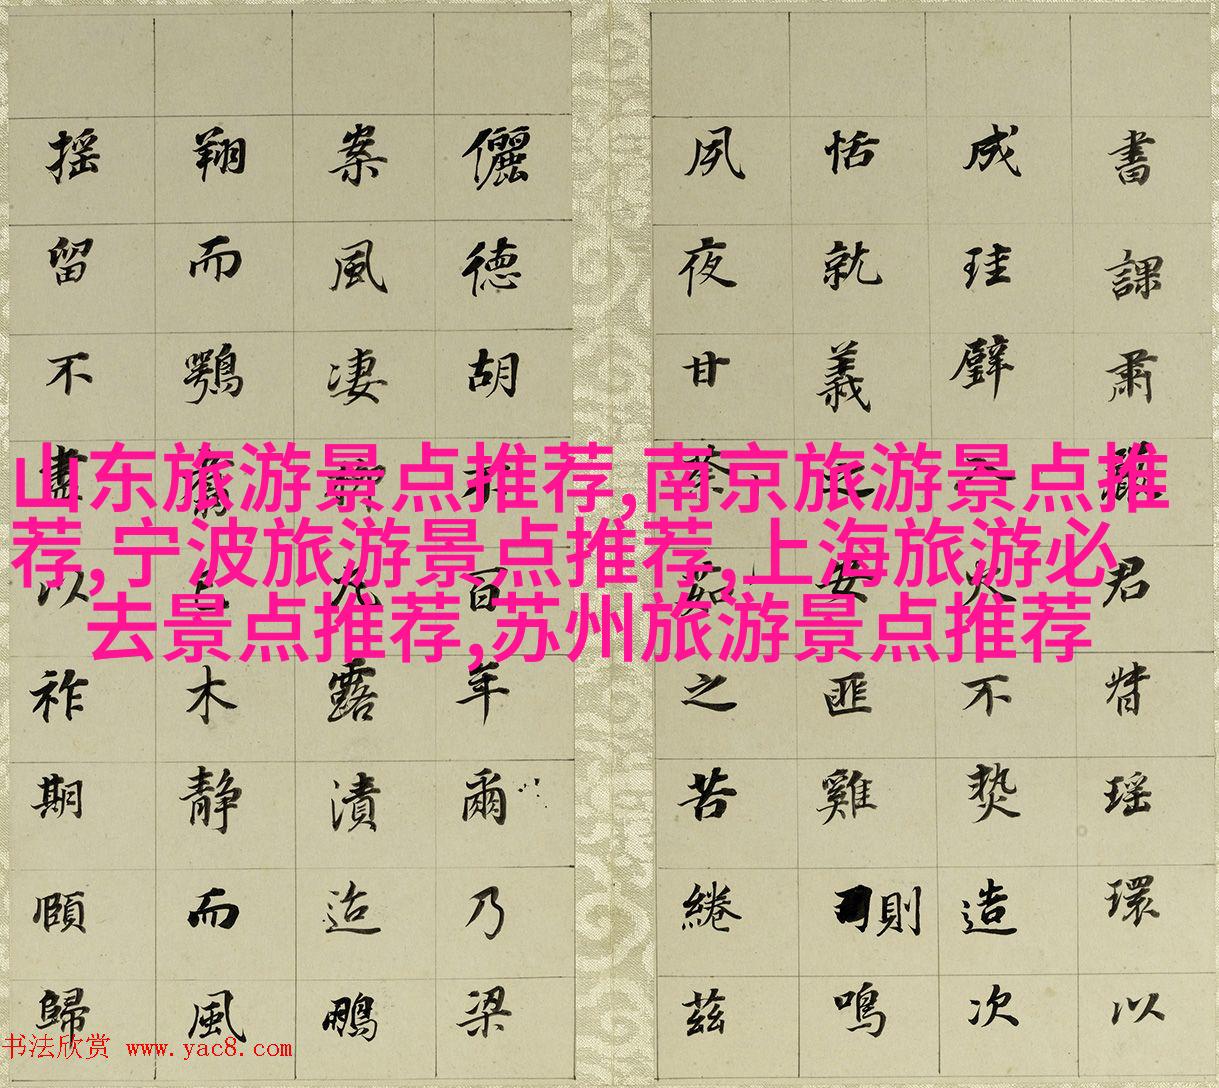 書課肅君瑶環以
成珪璧火不爇造次
恬就義之安匪雞則鳴
夙夜甘荼茹之苦綣茲
儷德胡未百年爾乃梁
案風凄九露漬迨鵬
翔而鶚木静而風
摇留不盡以祚期頤歸
山东旅游景点推荐,南京旅游景点推
荐,宁波旅游景点推荐,上海旅游必
去景点推荐,苏州旅游景点推荐
书法欣赏 www.yac8.com